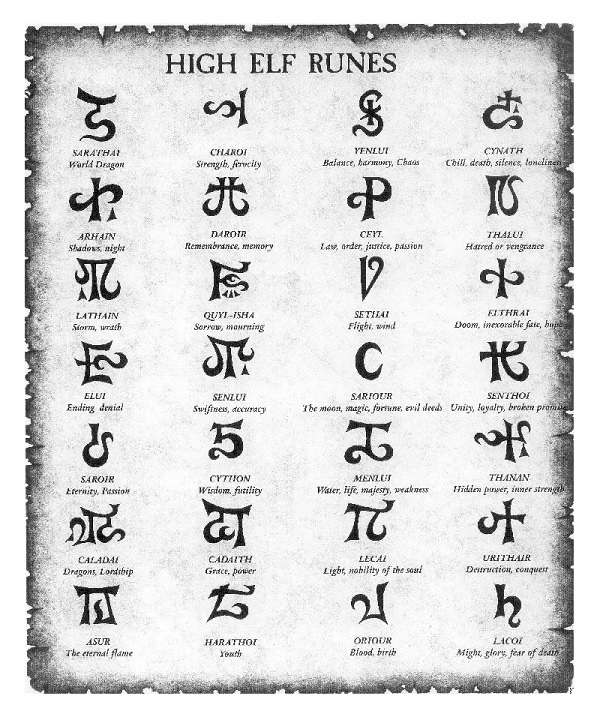 HIGH ELF RUNES
SARATHAI CHAROI YENLUI CYNATH
World Dragon Strength, ferocity Balance, harmony, Chaos Chill, death, silence, loneliness
ARHAIN DAROIR CEYL THALUI
Shadows, night Remembrance, memory Law, order, justice, passion Hatred or vengeance
LATHAIN QUYL-ISHA SETHAI ELTHRAI
Storm, wrath Sorrow, mourning Flight, wind Doom, inexorable fate, hope
ELUI SENLUI SARIOUR SENTHOI
Ending, denial Swiftness, accuracy The moon, magic, fortune, evil deeds Unity, loyalty, broken promise
SAROIR CYTHON MENLUI THANAN
Eternity, Passion Wisdom, futility Water, life, majesty, weakness Hidden power, inner strength
CALADAI CADAITH LECAI URITHAIR
Dragons, Lordship Grace, power Light, nobility of the soul Destruction, conquest
ASUR HARATHOI ORIOUR LACOI
The eternal flame Youth Blood, birth Might, glory, fear of death